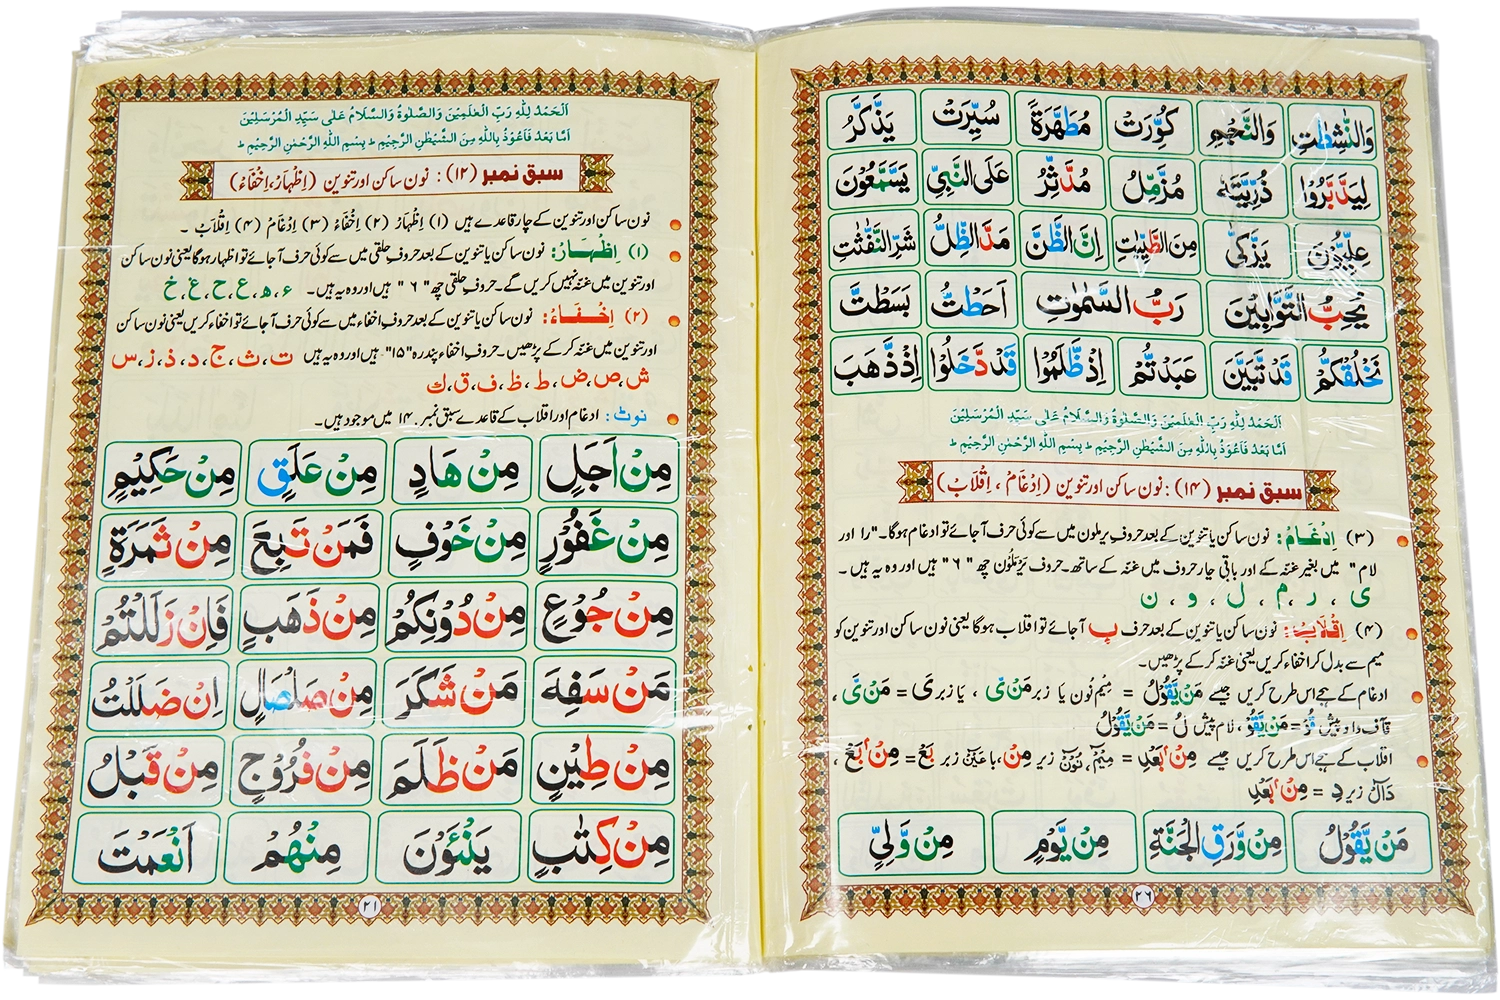 وَالنّٰشِطٰتِ وَالنَّجْمِ كُوِّرَتْ مُطَهَّرَةً سُيِّرَتْ يَذَّكَّرُ
لِيَدَّبَّرُوْا ذُرِّيَّتَهٗ مُزَّمِّلُ مُدَّثِّرُ عَلَى النَّبِيِّ يَسَّمَّعُوْنَ
عِلِّيُّوْنَ يَزَّكّٰى مِنَ الطَّيِّبٰتِ اِنَّ الظَّنَّ مَدَّ الظِّلَّ شَرِّ النَّفّٰثٰتِ
يُحِبُّ التَّوَّابِيْنَ رَبُّ السَّمٰوٰتِ اَحَطْتُّ بَسَطْتَّ
نَخْلُقْكُّمْ قَدْ تَّبَيَّنَ عَبَدْتُّمْ اِذْ ظَّلَمُوْا قَدْ دَّخَلُوْا اِذْ ذَّهَبَ
اَلْحَمْدُ لِلّٰهِ رَبِّ الْعٰلَمِيْنَ وَالصَّلٰوةُ وَالسَّلَامُ عَلٰى سَيِّدِ الْمُرْسَلِيْنَ
اَمَّا بَعْدُ فَاَعُوْذُ بِاللّٰهِ مِنَ الشَّيْطٰنِ الرَّجِيْمِ ط بِسْمِ اللّٰهِ الرَّحْمٰنِ الرَّحِيْمِ ط
سبق نمبر (۱۴): نون ساکن اور تنوین (اِدْغَامْ ، اِقْلَابْ)
(۳) اِدْغَامْ: نون ساکن یا تنوین کے بعد حروف یرملون میں سے کوئی حرف آجائے تو ادغام ہوگا۔ "را اور
لام" میں بغیر غنّہ کے اور باقی چار حروف میں غنّہ کے ساتھ۔ حروف یَرْمَلُوْن چھ "۶" ہیں اور وہ یہ ہیں۔
ی ، ر ، م ، ل ، و ، ن
(۴) اِقْلَابْ: نون ساکن یا تنوین کے بعد حرف ب آجائے تو اقلاب ہوگا یعنی نون ساکن اور تنوین کو
میم سے بدل کر اخفاء کریں یعنی غنّہ کر کے پڑھیں۔
ادغام کے ہجے اس طرح کریں جیسے مَنْ يَّقُوْلُ = مِیْم نُون یا زبر مَنْ يَّ ، یا زبر یَ = مَنْ يَّ ،
قاف واو پیش قُوْ = مَنْ يَّقُوْ ، لام پیش لُ = مَنْ يَّقُوْلُ
اقلاب کے ہجے اس طرح کریں جیسے مِنْۢ بَعْدِ = مِیْمْ نُوْنْ زیر مِنْ ، با عَیْنْ زبر بَعْ = مِنْۢ بَعْ ،
دَالْ زیر دِ = مِنْۢ بَعْدِ
مَنْ يَّقُوْلُ مِنْ وَّرَقِ الْجَنَّةِ مِنْ يَّوْمٍ مِنْ وَّلِيٍّ
۲۶
اَلْحَمْدُ لِلّٰهِ رَبِّ الْعٰلَمِيْنَ وَالصَّلٰوةُ وَالسَّلَامُ عَلٰى سَيِّدِ الْمُرْسَلِيْنَ
اَمَّا بَعْدُ فَاَعُوْذُ بِاللّٰهِ مِنَ الشَّيْطٰنِ الرَّجِيْمِ ط بِسْمِ اللّٰهِ الرَّحْمٰنِ الرَّحِيْمِ ط
سبق نمبر (۱۲): نون ساکن اور تنوین (اِظْهَارْ، اِخْفَاءْ)
نون ساکن اور تنوین کے چار قاعدے ہیں (۱) اِظْهَارْ (۲) اِخْفَاءْ (۳) اِدْغَامْ (۴) اِقْلَابْ ۔
(۱) اِظْهَارْ: نون ساکن یا تنوین کے بعد حروف حلقی میں سے کوئی حرف آجائے تو اظہار ہوگا یعنی نون ساکن
اور تنوین میں غنّہ نہیں کریں گے۔ حروف حلقی چھ "۶" ہیں اور وہ یہ ہیں۔ ء، ہ، ع، ح، غ، خ
(۲) اِخْفَاءْ: نون ساکن یا تنوین کے بعد حروف اخفاء میں سے کوئی حرف آجائے تو اخفاء کریں یعنی نون ساکن
اور تنوین میں غنّہ کر کے پڑھیں۔ حروف اخفاء پندرہ "۱۵" ہیں اور وہ یہ ہیں ت، ث، ج، د، ذ، ز، س
ش، ص، ض، ط، ظ، ف، ق، ك
نوٹ: ادغام اور اقلاب کے قاعدے سبق نمبر ۱۴ میں موجود ہیں۔
مِنْ اَجَلٍ مِنْ هَادٍ مِنْ عَلَقٍ مِنْ حَكِيْمٍ
مِنْ غَفُوْرٍ مِنْ خَوْفٍ فَمَنْ تَبِعَ مِنْ ثَمَرَةٍ
مِنْ جُوْعٍ مِنْ دُوْنِكُمْ مِنْ ذَهَبٍ فَاِنْ زَلَلْتُمْ
مَنْ سَفِهَ مَنْ شَكَرَ مِنْ صَلْصَالٍ اِنْ ضَلَلْتُ
مِنْ طِيْنٍ مَنْ ظَلَمَ مِنْ فُرُوْجٍ مِنْ قَبْلُ
مِنْ كِتٰبٍ يَنْئَوْنَ مِنْهُمْ اَنْعَمْتَ
۲۱